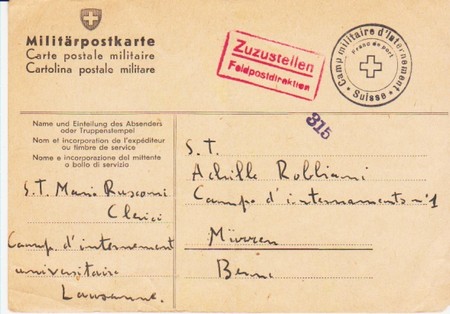 Militärpostkarte
Carte postale militaire
Cartolina postale militare
Zuzustellen
Feldpostdirektion
Camp militaire d'Internement
Franc de port
Suisse
315
Name und Einteilung des Absenders
oder Truppenstempel
Nom et incorporation de l'expéditeur
ou timbre de service
Nome e incorporazione del mittente
o bollo di servizio
S.T. Mario Rusconi
Clerici
Camp d'internement
universitaire
Lausanne.
S.T.
Achille Robbiani
Campo d'internamento n° 1
Mürren
Berna